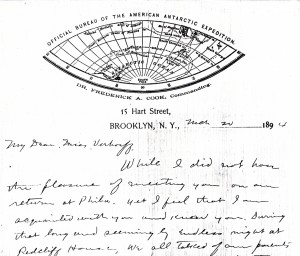 OFFICIAL BUREAU OF THE AMERICAN ANTARCTIC EXPEDITION.
DR. FREDERICK A. COOK, Commanding.
15 Hart Street,
BROOKLYN, N. Y., Mch 20 1894
My Dear Miss Verhoeff
While I did not have
the pleasure of meeting you on our
return at Phila. yet I feel that I am
acquainted with you and know you. During
that long and seemingly endless night at
Redcliff House, we all talked of our parents